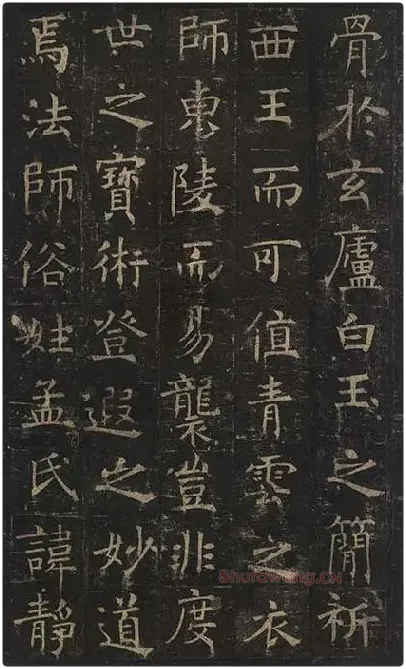 骨於玄廬白玉之簡祈
西王而可值青雲之衣
師東陵而易襲豈非度
世之寶術登遐之妙道
焉法師俗姓孟氏諱靜
Shufawang.CN